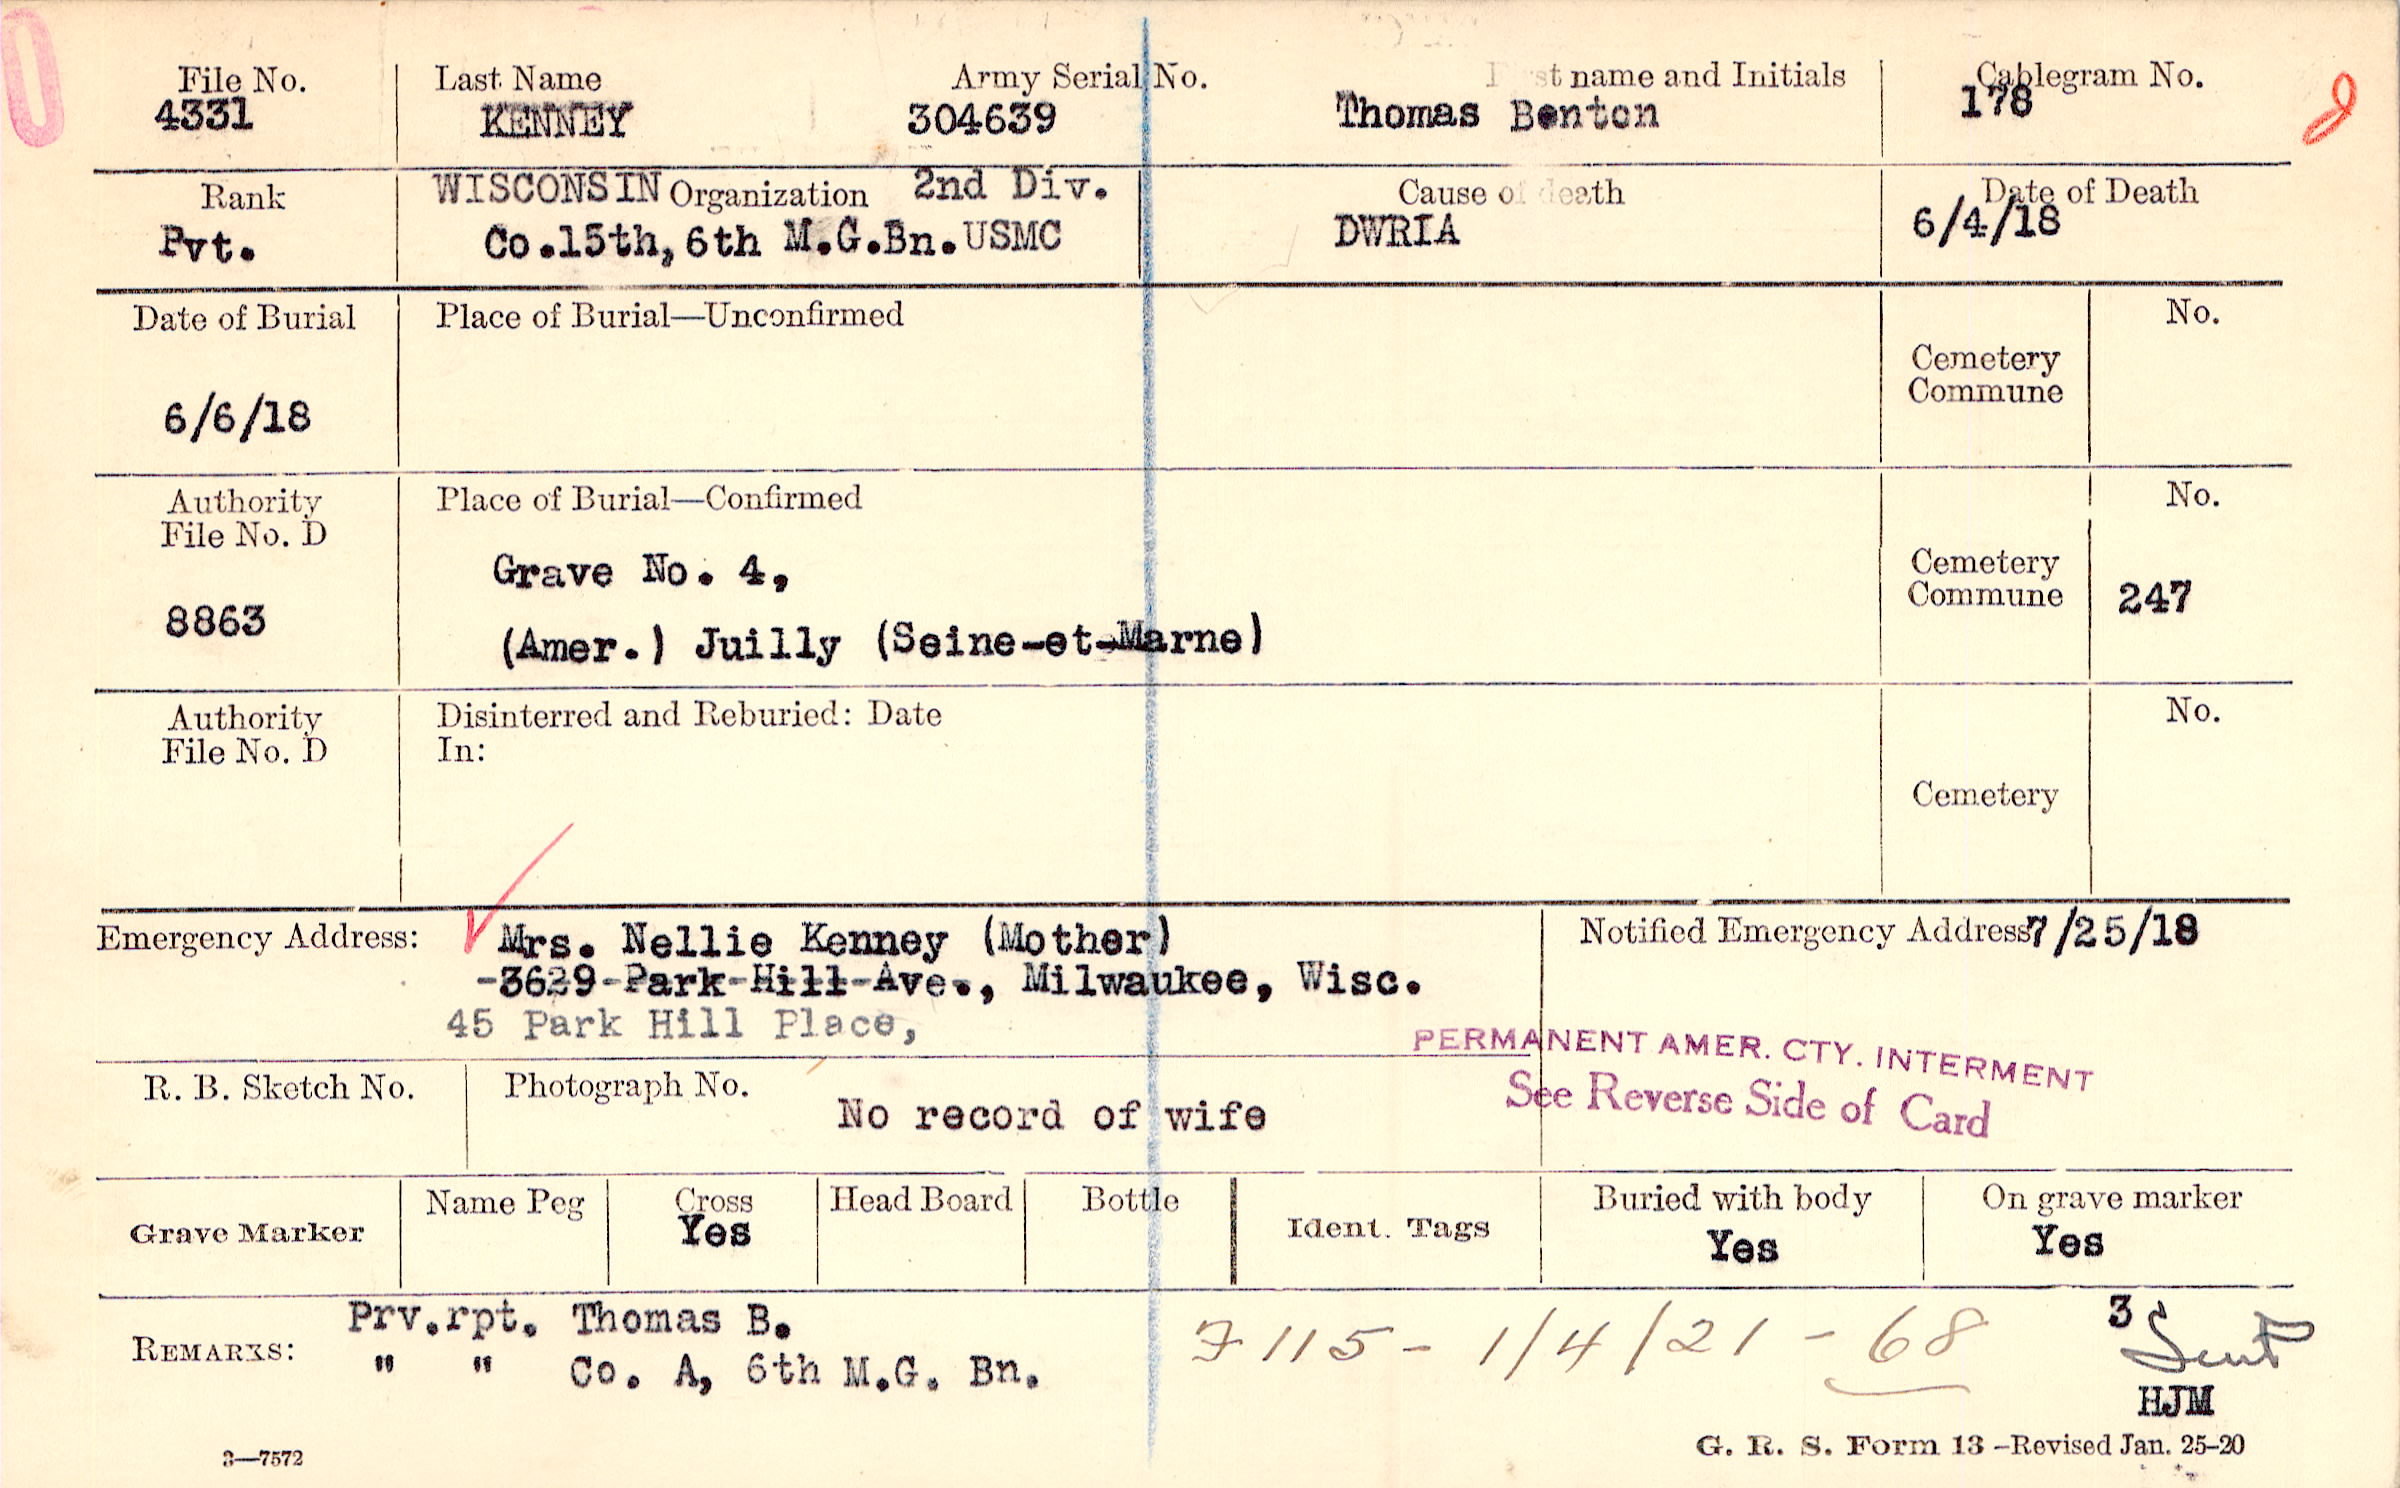 File No. Last Name Army Serial No. First name and Initials Cablegram No.
4331 KENNEY 304639 Thomas Benton 178
Rank WISCONSIN Organization 2nd Div. Cause of death Date of Death
Pvt. Co.15th, 6th M.G.Bn. USMC DWRIA 6/4/18
Date of Burial Place of Burial—Unconfirmed No.
Cemetery
Commune
6/6/18
Authority Place of Burial—Confirmed No.
File No. D
Grave No. 4, Cemetery
8863 Commune 247
(Amer.) Juilly (Seine-et-Marne)
Authority Disinterred and Reburied: Date No.
File No. D In:
Cemetery
Emergency Address: Mrs. Nellie Kenney (Mother) Notified Emergency Address 7/25/18
-3629-Park-Hill-Ave., Milwaukee, Wisc.
45 Park Hill Place,
PERMANENT AMER. CTY. INTERMENT
R. B. Sketch No. Photograph No. See Reverse Side of Card
No record of wife
Grave Marker Name Peg Cross Head Board Bottle Ident. Tags Buried with body On grave marker
Yes Yes Yes
REMARKS: Prv.rpt. Thomas B. 3
" " Co. A, 6th M.G. Bn. 7115 - 1/4/21 - 68 Sent
HJM
3—7572 G. R. S. Form 13 -Revised Jan. 25-20